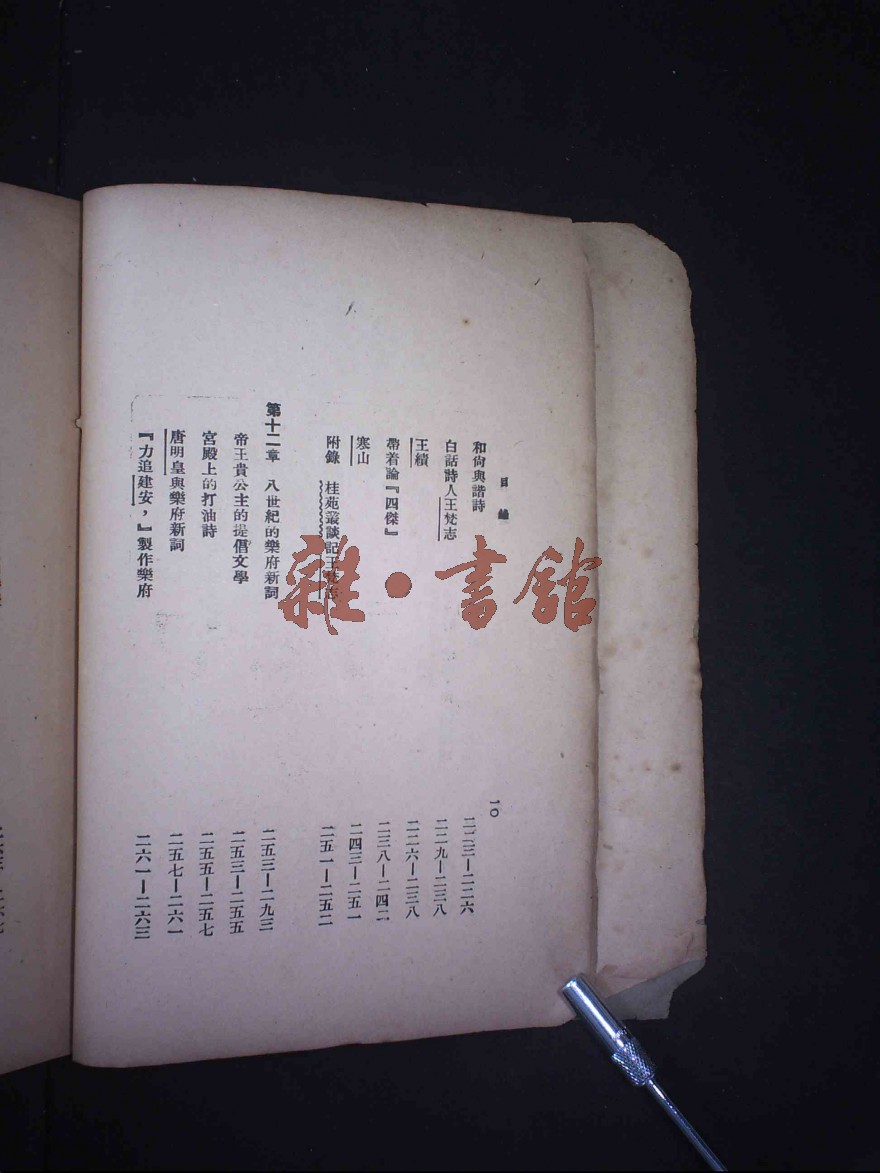 目錄 一〇
和尙與諧詩 二二三—二二六
白話詩人王梵志 二二九—二三八
王績 二二六—二三八
帶着論『四傑』 二三八—二四二
寒山 二四三—二五一
附錄 桂苑叢談記王梵志 二五一—二五二
第十二章 八世紀的樂府新詞 二五三—二九三
帝王貴公主的提倡文學 二五三—二五五
宮殿上的打油詩 二五五—二五七
唐明皇與樂府新詞 二五七—二六一
『力追建安，』製作樂府 二六一—二六三
雜·書館